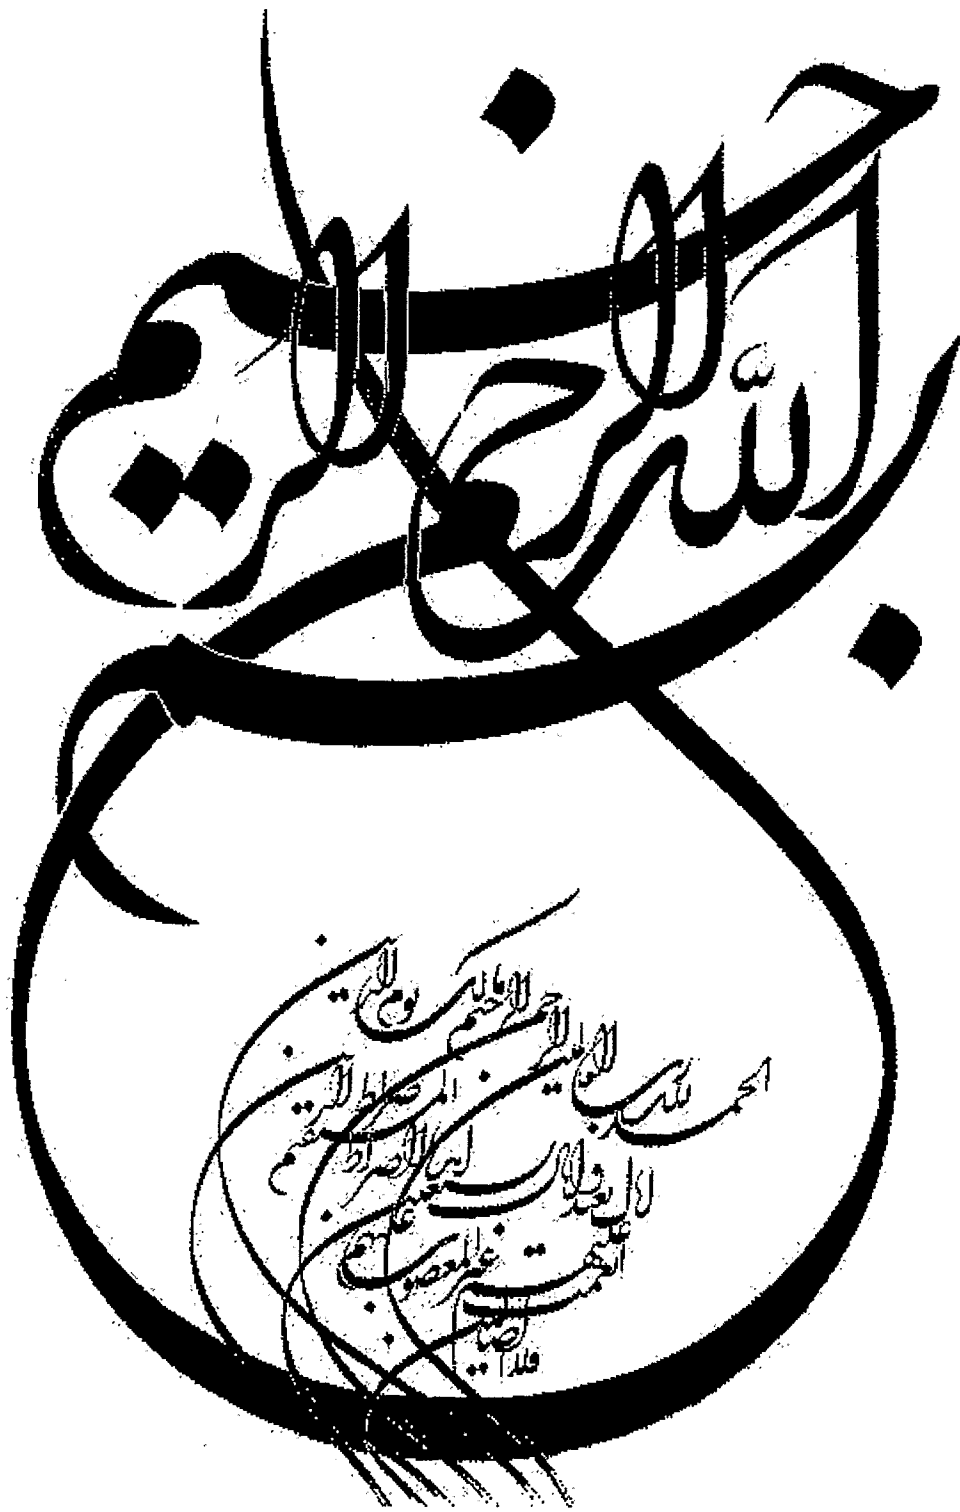 بسم
الله الرحمن الرحیم
الحمد لله رب العالمین
الرحمن الرحیم
مالک یوم الدین
ایاک نعبد و ایاک نستعین
اهدنا الصراط المستقیم
صراط الذین
انعمت علیهم
غیر المغضوب علیهم
ولا الضالین